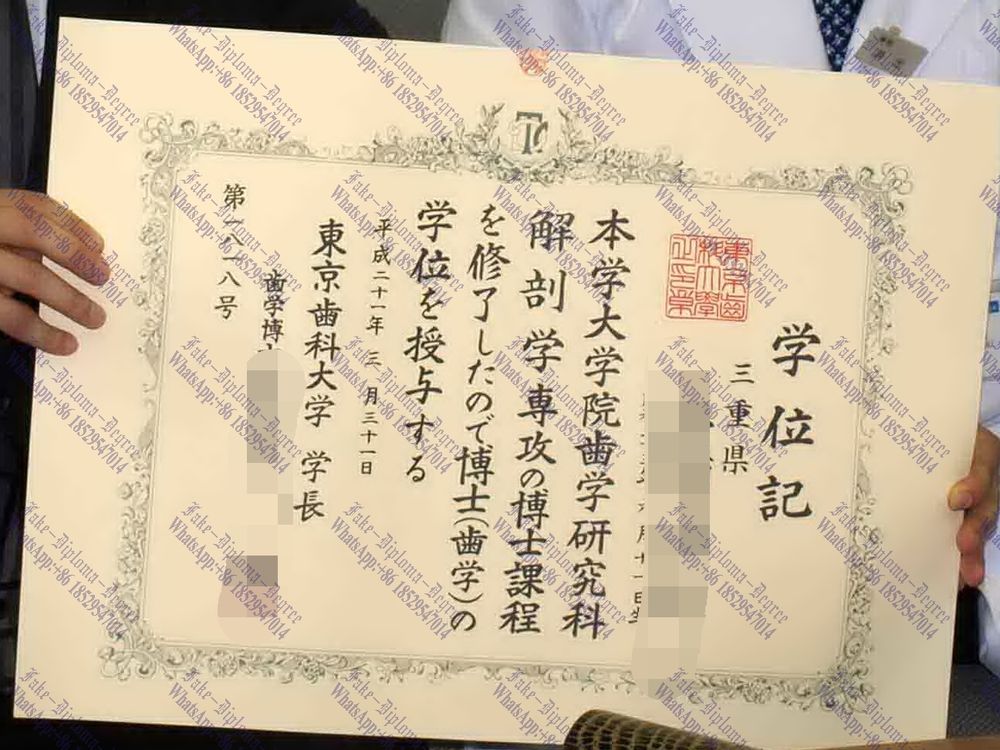 学位記
三重県
月十一日生
東京齒
科大學
之印章
本学大学院歯学研究科
解剖学専攻の博士課程
を修了したので博士(歯学)の
学位を授与する
平成二十一年三月三十一日
東京歯科大学 学長
歯学博
第一八一八号
Fake-Diploma-Degree
WhatsApp:+86 18529547014